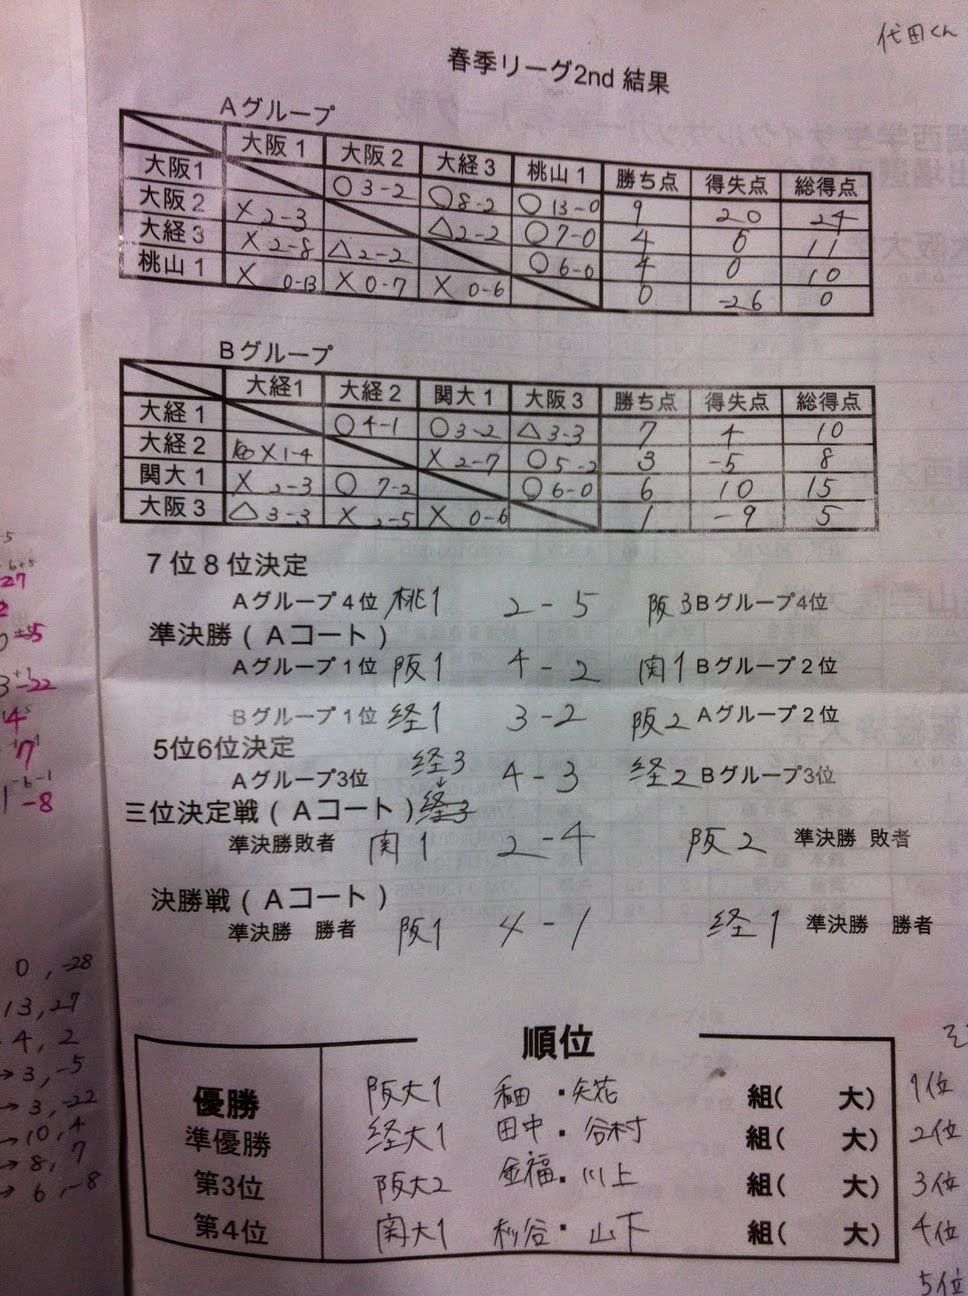 代田くん
春季リーグ2nd 結果
Aグループ
大阪1 大阪2 大経3 桃山1 勝ち点 得失点 総得点
大阪1 ○3-2 ○8-2 ○13-0 9 20 24
大阪2 ×2-3 △2-2 ○7-0 4 6 11
大経3 ×2-8 △2-2 ○6-0 4 0 10
桃山1 × 0-13 ×0-7 × 0-6 0 -26 0
Bグループ
大経1 大経2 関大1 大阪3 勝ち点 得失点 総得点
大経1 ○4-1 ○3-2 △3-3 7 4 10
大経2 ×1-4 ×2-7 ○5-2 3 -5 8
関大1 × 2-3 ○ 7-2 ○6-0 6 10 15
大阪3 △3-3 × 2-5 × 0-6 1 -9 5
7位8位決定
Aグループ4位 桃1 2-5 阪3 Bグループ4位
準決勝(Aコート)
Aグループ1位 阪1 4-2 関1 Bグループ2位
Bグループ1位 経1 3-2 阪2 Aグループ2位
5位6位決定
Aグループ3位 経3 4-3 経2 Bグループ3位
三位決定戦(Aコート)
準決勝敗者 関1 2-4 阪2 準決勝 敗者
決勝戦(Aコート)
準決勝 勝者 阪1 4-1 経1 準決勝 勝者
0,-28
13,27
4,2
→3,-5
→3,-22
→10,4
→8,7
→6,-8
順位
優勝 阪大1 ・矢花 組( 大) 1位
準優勝 経大1 田中・谷村 組( 大) 2位
第3位 阪大2 金福・川上 組( 大) 3位
第4位 関大1 杉谷・山下 組( 大) 4位
5位